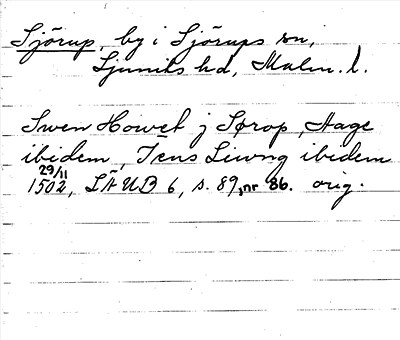 Sjörup, by i Sjörups sn,
Ljunits hd, Malm. l.
Swen Howet j Sørop, Aage
ibidem, Jens Liwng ibidem
29/11
1502, LÄUB 6, s. 89, nr 86. orig.